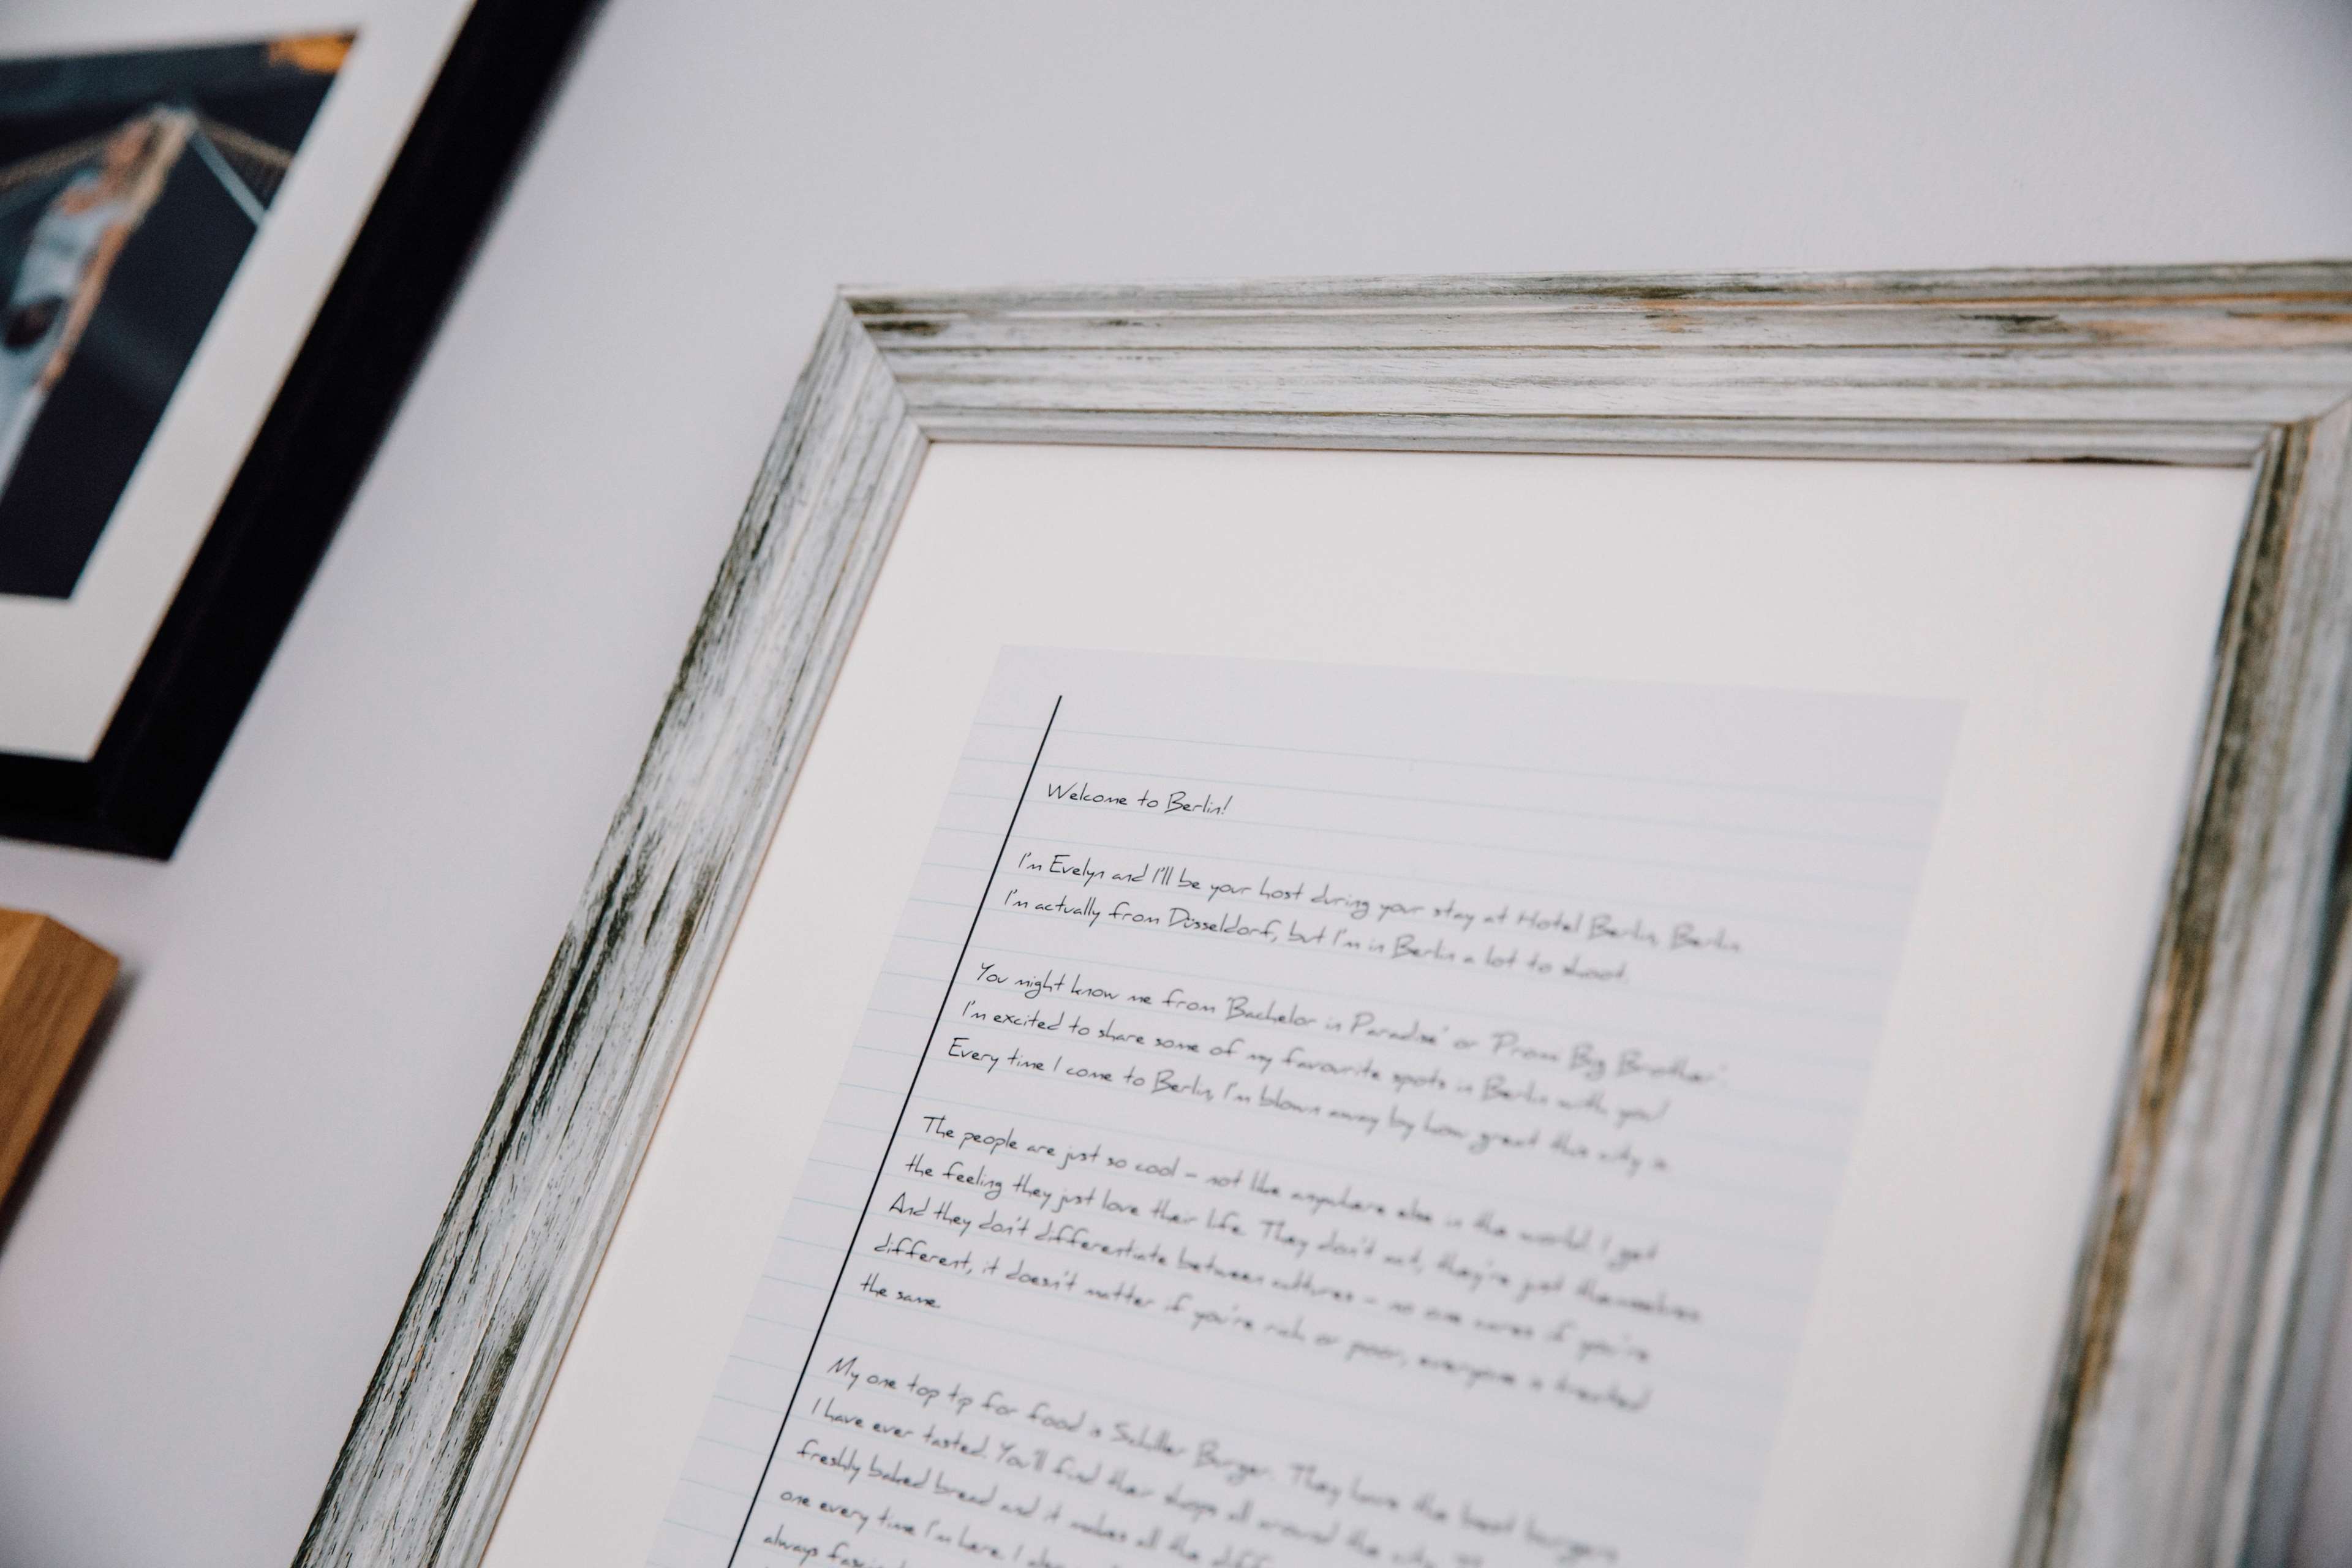 Welcome to Berlin!
I'm Evelyn and I'll be your host during your stay at Hotel Berlin, Berlin.
I'm actually from Düsseldorf, but I'm in Berlin a lot to shoot.
You might know me from 'Bachelor in Paradise' or 'Promi Big Brother'.
I'm excited to share some of my favourite spots in Berlin with you!
Every time I come to Berlin, I'm blown away by how great this city is.
The people are just so cool – not like anywhere else in the world. I get
the feeling they just love their life. They don't act, they're just themselves.
And they don't differentiate between cultures – no one cares if you're
different, it doesn't matter if you're rich or poor, everyone is treated
the same.
My one top tip for food is Schiller Burger. They have the best burgers
I have ever tasted. You'll find their shops all around the city.
freshly baked bread and it makes all the
one every time I'm here. I
always